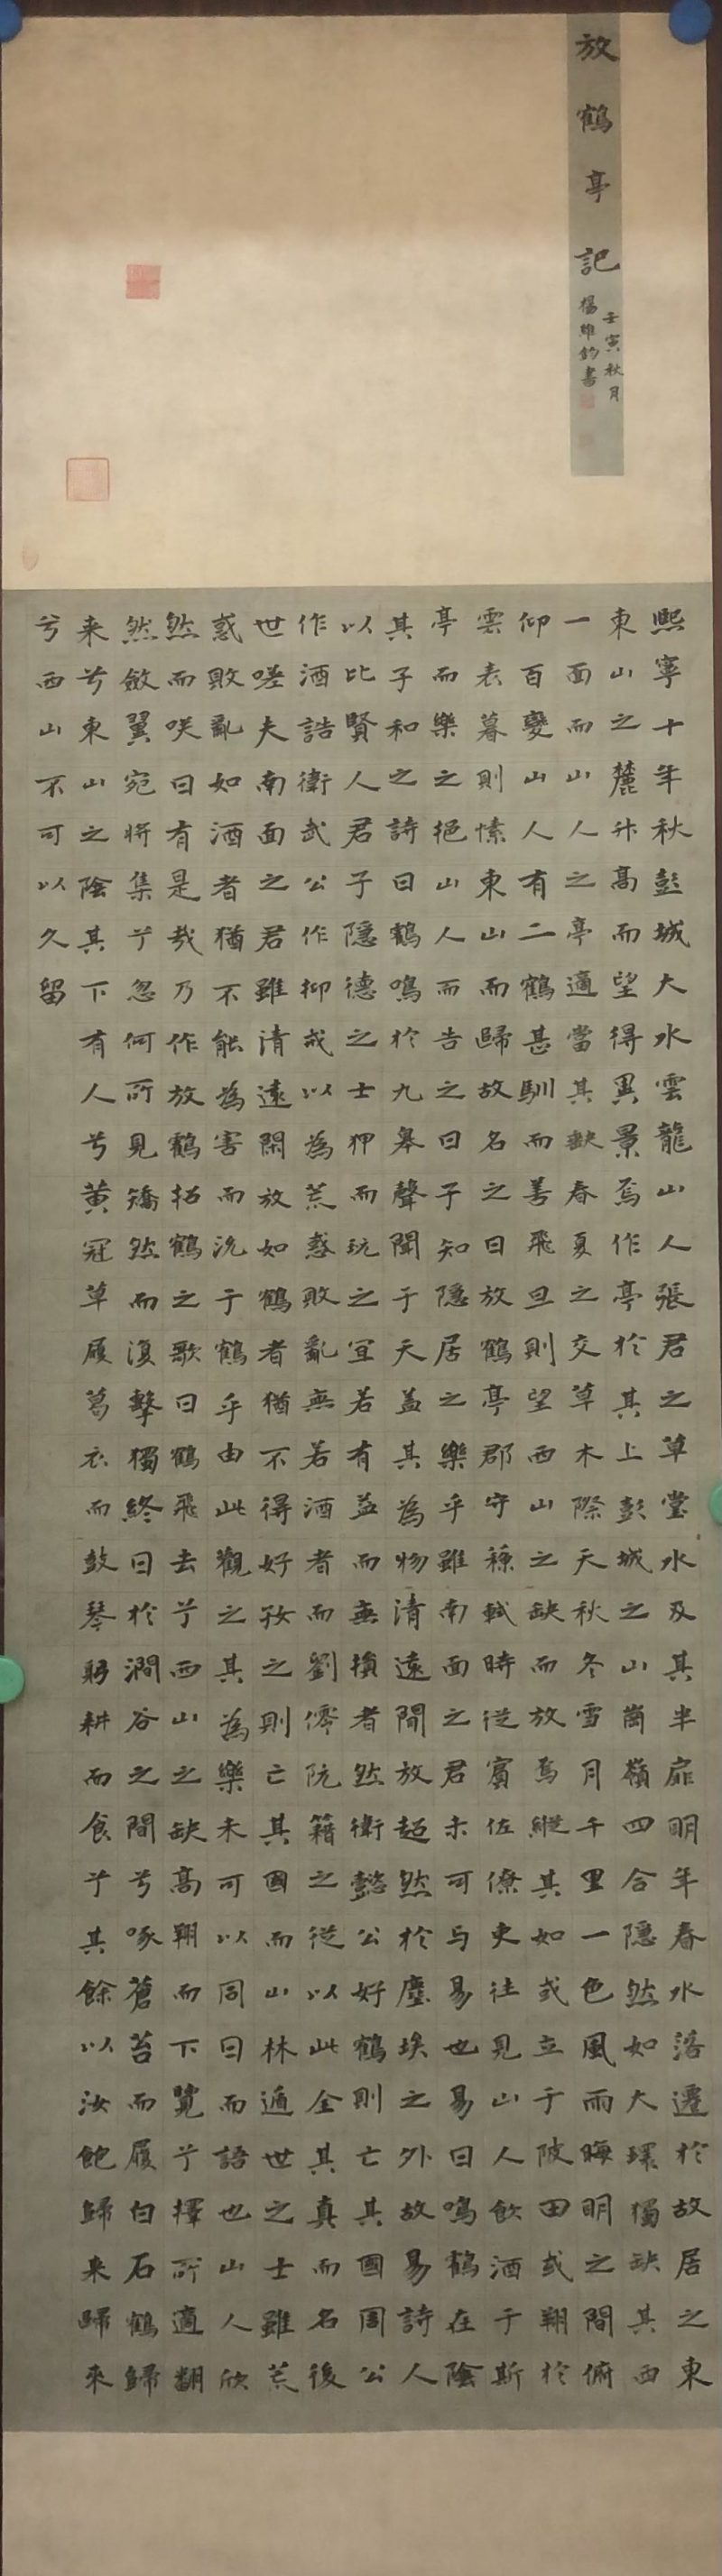 放鶴亭記
壬寅秋月
楊維鈞書
熙寧十年秋彭城大水雲龍山人張君之草堂水及其半扉明年春水落遷於故居之東
東山之麓升高而望得異景焉作亭於其上彭城之山崗嶺四合隱然如大環獨缺其西
一面而山人之亭適當其缺春夏之交草木際天秋冬雪月千里一色風雨晦明之間俯
仰百變山人有二鶴甚馴而善飛旦則望西山之缺而放焉縱其如或立于陂田或翔於
雲表暮則愫東山而歸故名之曰放鶴亭郡守蘇軾時從賓佐僚吏往見山人飲酒于斯
亭而樂之挹山人而告之曰子知隱居之樂乎雖南面之君未可与易也易曰鳴鶴在陰
其子和之詩曰鶴鳴於九皋聲聞于天蓋其為物清遠閒放超然於塵埃之外故易詩人
以比賢人君子隱德之士狎而玩之宜若有益而無損者然衛懿公好鶴則亡其國周公
作酒誥衛武公作抑戒以為荒惑敗亂無若酒者而劉伶阮籍之從以此全其真而名後
世嗟夫南面之君雖清遠閑放如鶴者猶不得好好之則亡其國而山林遁世之士雖荒
惑敗亂如酒者猶不能為害而況于鶴乎由此觀之其為樂未可以同日而語也山人欣
然而咲曰有是哉乃作放鶴招鶴之歌曰鶴飛去兮西山之缺高翔而下覽兮擇所適翻
然斂翼宛將集兮忽何所見矯然而復擊獨終日於澗谷之間兮啄蒼苔而履白石鶴歸
来兮東山之陰其下有人兮黃冠草履葛衣而鼓琴躬耕而食兮其餘以汝飽歸来歸來
兮西山不可以久留